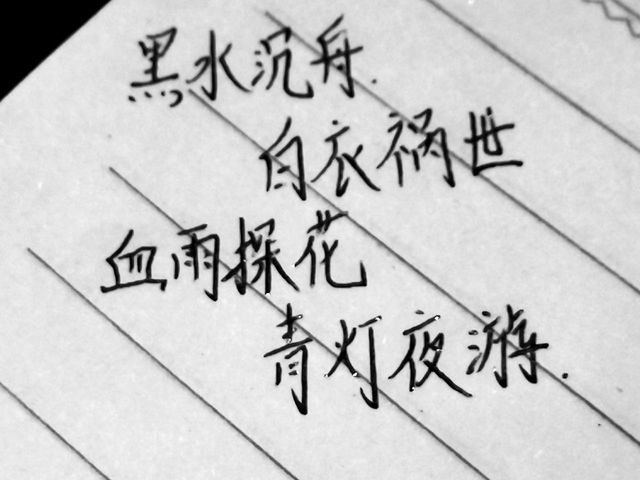 黑水沉舟.
白衣祸世
血雨探花
青灯夜游.